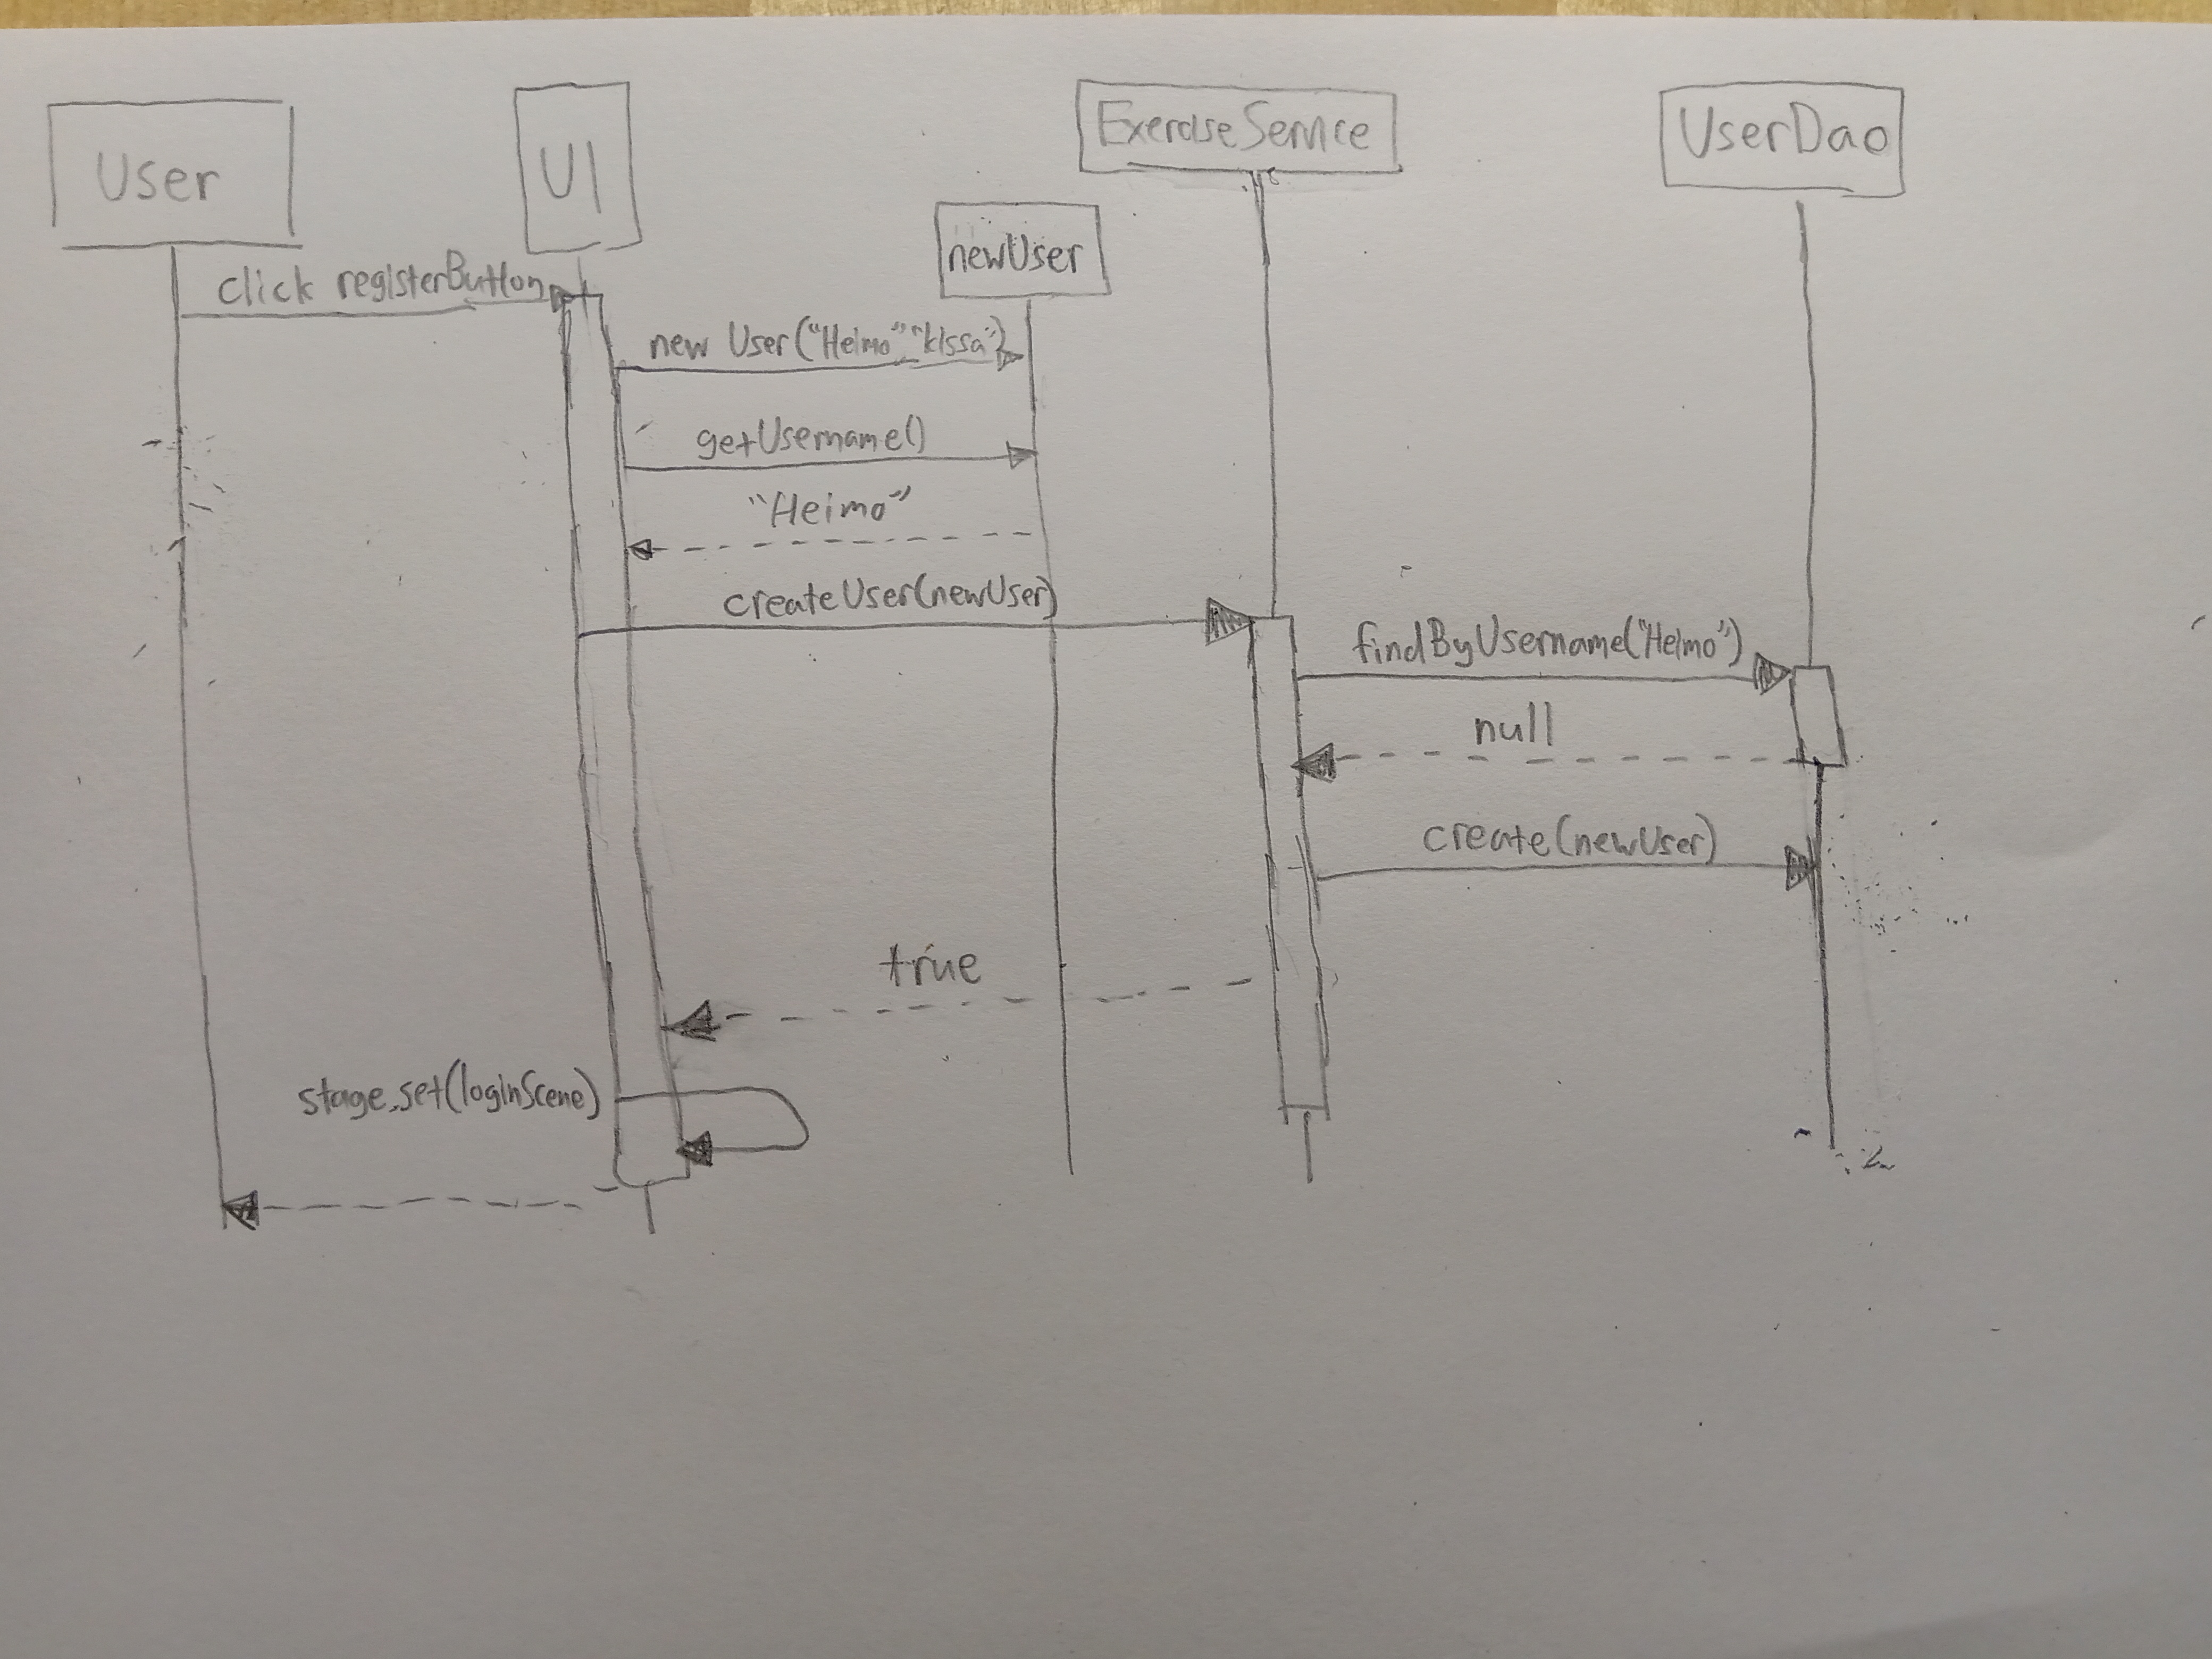 User
UI
ExerciseService
UserDao
newUser
click registerButton
new User("Heimo" "kissa")
getUsername()
"Heimo"
createUser(newUser)
findByUsername("Heimo")
null
create(newUser)
true
stage.set(loginScene)